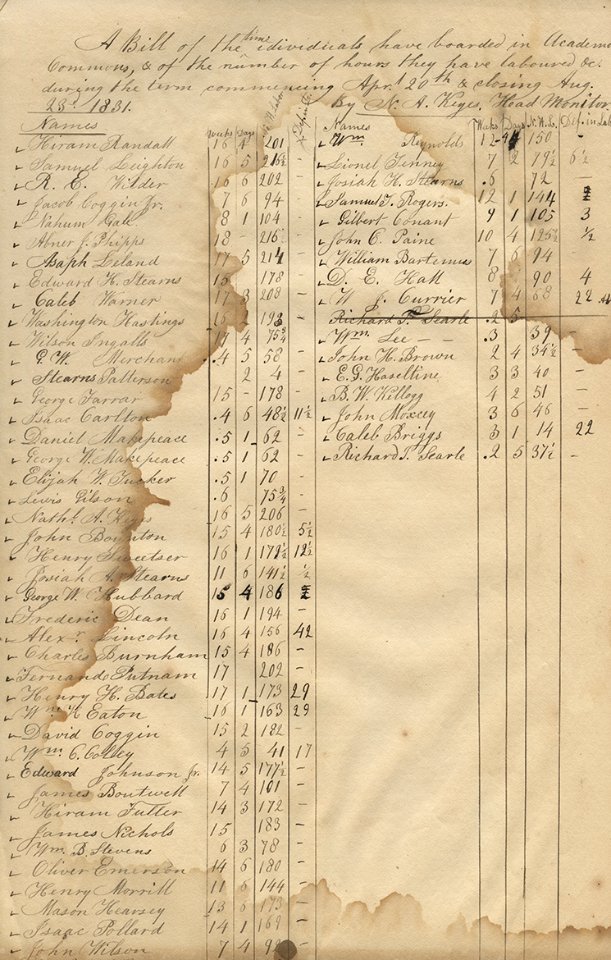 A Bill of the time idividuals have boarded in Academ
Commons, & of the number of hours they have laboured &c.
during the term commencing Aprt 20th & closing Aug.
23d 1831. By N. A. Keyes, Head Monitor
Names Weeks Days
Hiram Randall 16 4 201
Samuel Leighton 16 5 215½
R. E. Wilder 16 6 202 -
Jacob Coggin Jr. 7 6 94 -
Nahum Gale 8 1 104 -
Abner J. Phipps 18 - 216 -
Asaph Leland 17 5 214
Edward H. Stearns 15 178
Caleb Warner 17 3 208 -
Washington Hastings 15 193
Wilson Ingalls 17 4 75¾
G. W. Merchant .4 5 58 -
Stearns Patterson 2 4 -
George Farrar 15 - 178 -
Isaac Carlton .4 6 48½ 11½
Daniel Makepeace .5 1 62 -
George W. Makepeace .5 1 62 -
Elijah W. Tucker .5 1 70
Lewis Gilson .6 75¾ -
Nathl. A. Keyes 16 5 206 -
John Boynton 15 4 180½ 5½
Henry Sweetser 16 1 171½ 12½
Josiah A. Stearns 11 6 141½ ½
George W. Hubbard 15 4 186
Frederic Dean 16 1 194 -
Alexr. Lincoln 16 4 156 42
Charles Burnham 15 4 186 -
Fernando Putnam 17 202 -
Henry H. Bates 17 1 173 29
Wm H Eaton 16 1 163 29
David Coggin 15 2 182 -
Wm. C. Colley 4 5 41 17
Edward Johnson Jr. 14 5 177½ -
James Boutwell 7 4 101 -
Hiram Tutler 14 3 172 -
James Nichols 15 183 -
Wm. D. Stevens 6 3 78 -
Oliver Emerson 14 6 180 -
Henry Morrill 11 6 144 -
Mason Hearsey 13 6 173 -
Isaac Pollard 14 1 169 -
John Wilson 7 4 -
Names Weeks Days H. La. Def. in Lab
Wm Reynolds 12 4 150
Lionel Tenney 7 2 79½ 6½
Josiah H. Stearns .6 72 -
Samuel T. Rogers. 12 1 144
Gilbert Conant 9 1 105 3
John C. Paine 10 4 125½ ½
William Bartemus 7 6 94
D. E. Hall 8 90 4
W. J. Currier 7 4 68 22
Richard T. Searle .2 5
Wm Lee - - .3 39 -
John H. Brown 2 4 34½ -
E. G. Haseltine 3 3 40 -
B. W. Kellogg 4 2 51 -
John Moxcey 3 6 46 -
Caleb Briggs 3 1 14 22
Richard T. Searle .2 5 37½ -